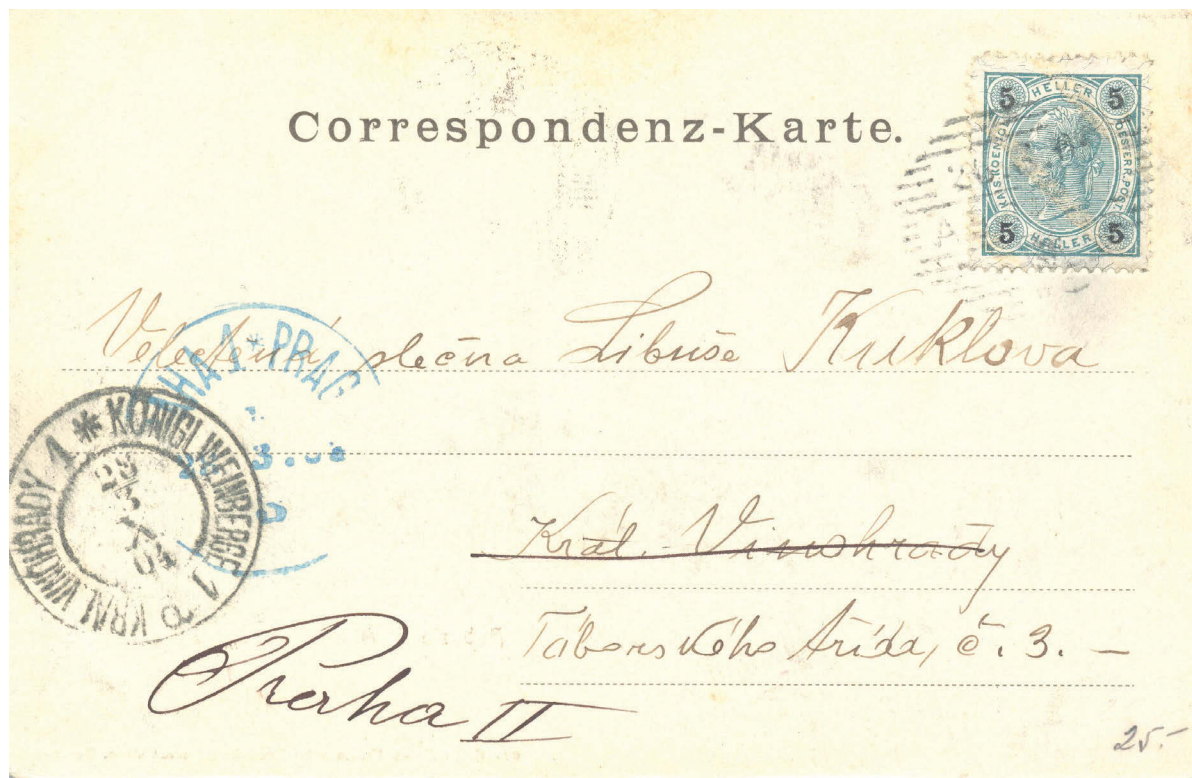 Correspondenz-Karte.
5 HELLER 5
KAIS. KOENIGL. OESTERR. POST.
5 HELLER 5
Velectěná slečna Libuše Kuklova
PRAG
KÖNIGL. WEINBERGE 1
KRÁL. VINOHRADY 1
Král. Vinohrady
Táborského třída, č. 3. —
Praha II
25.-